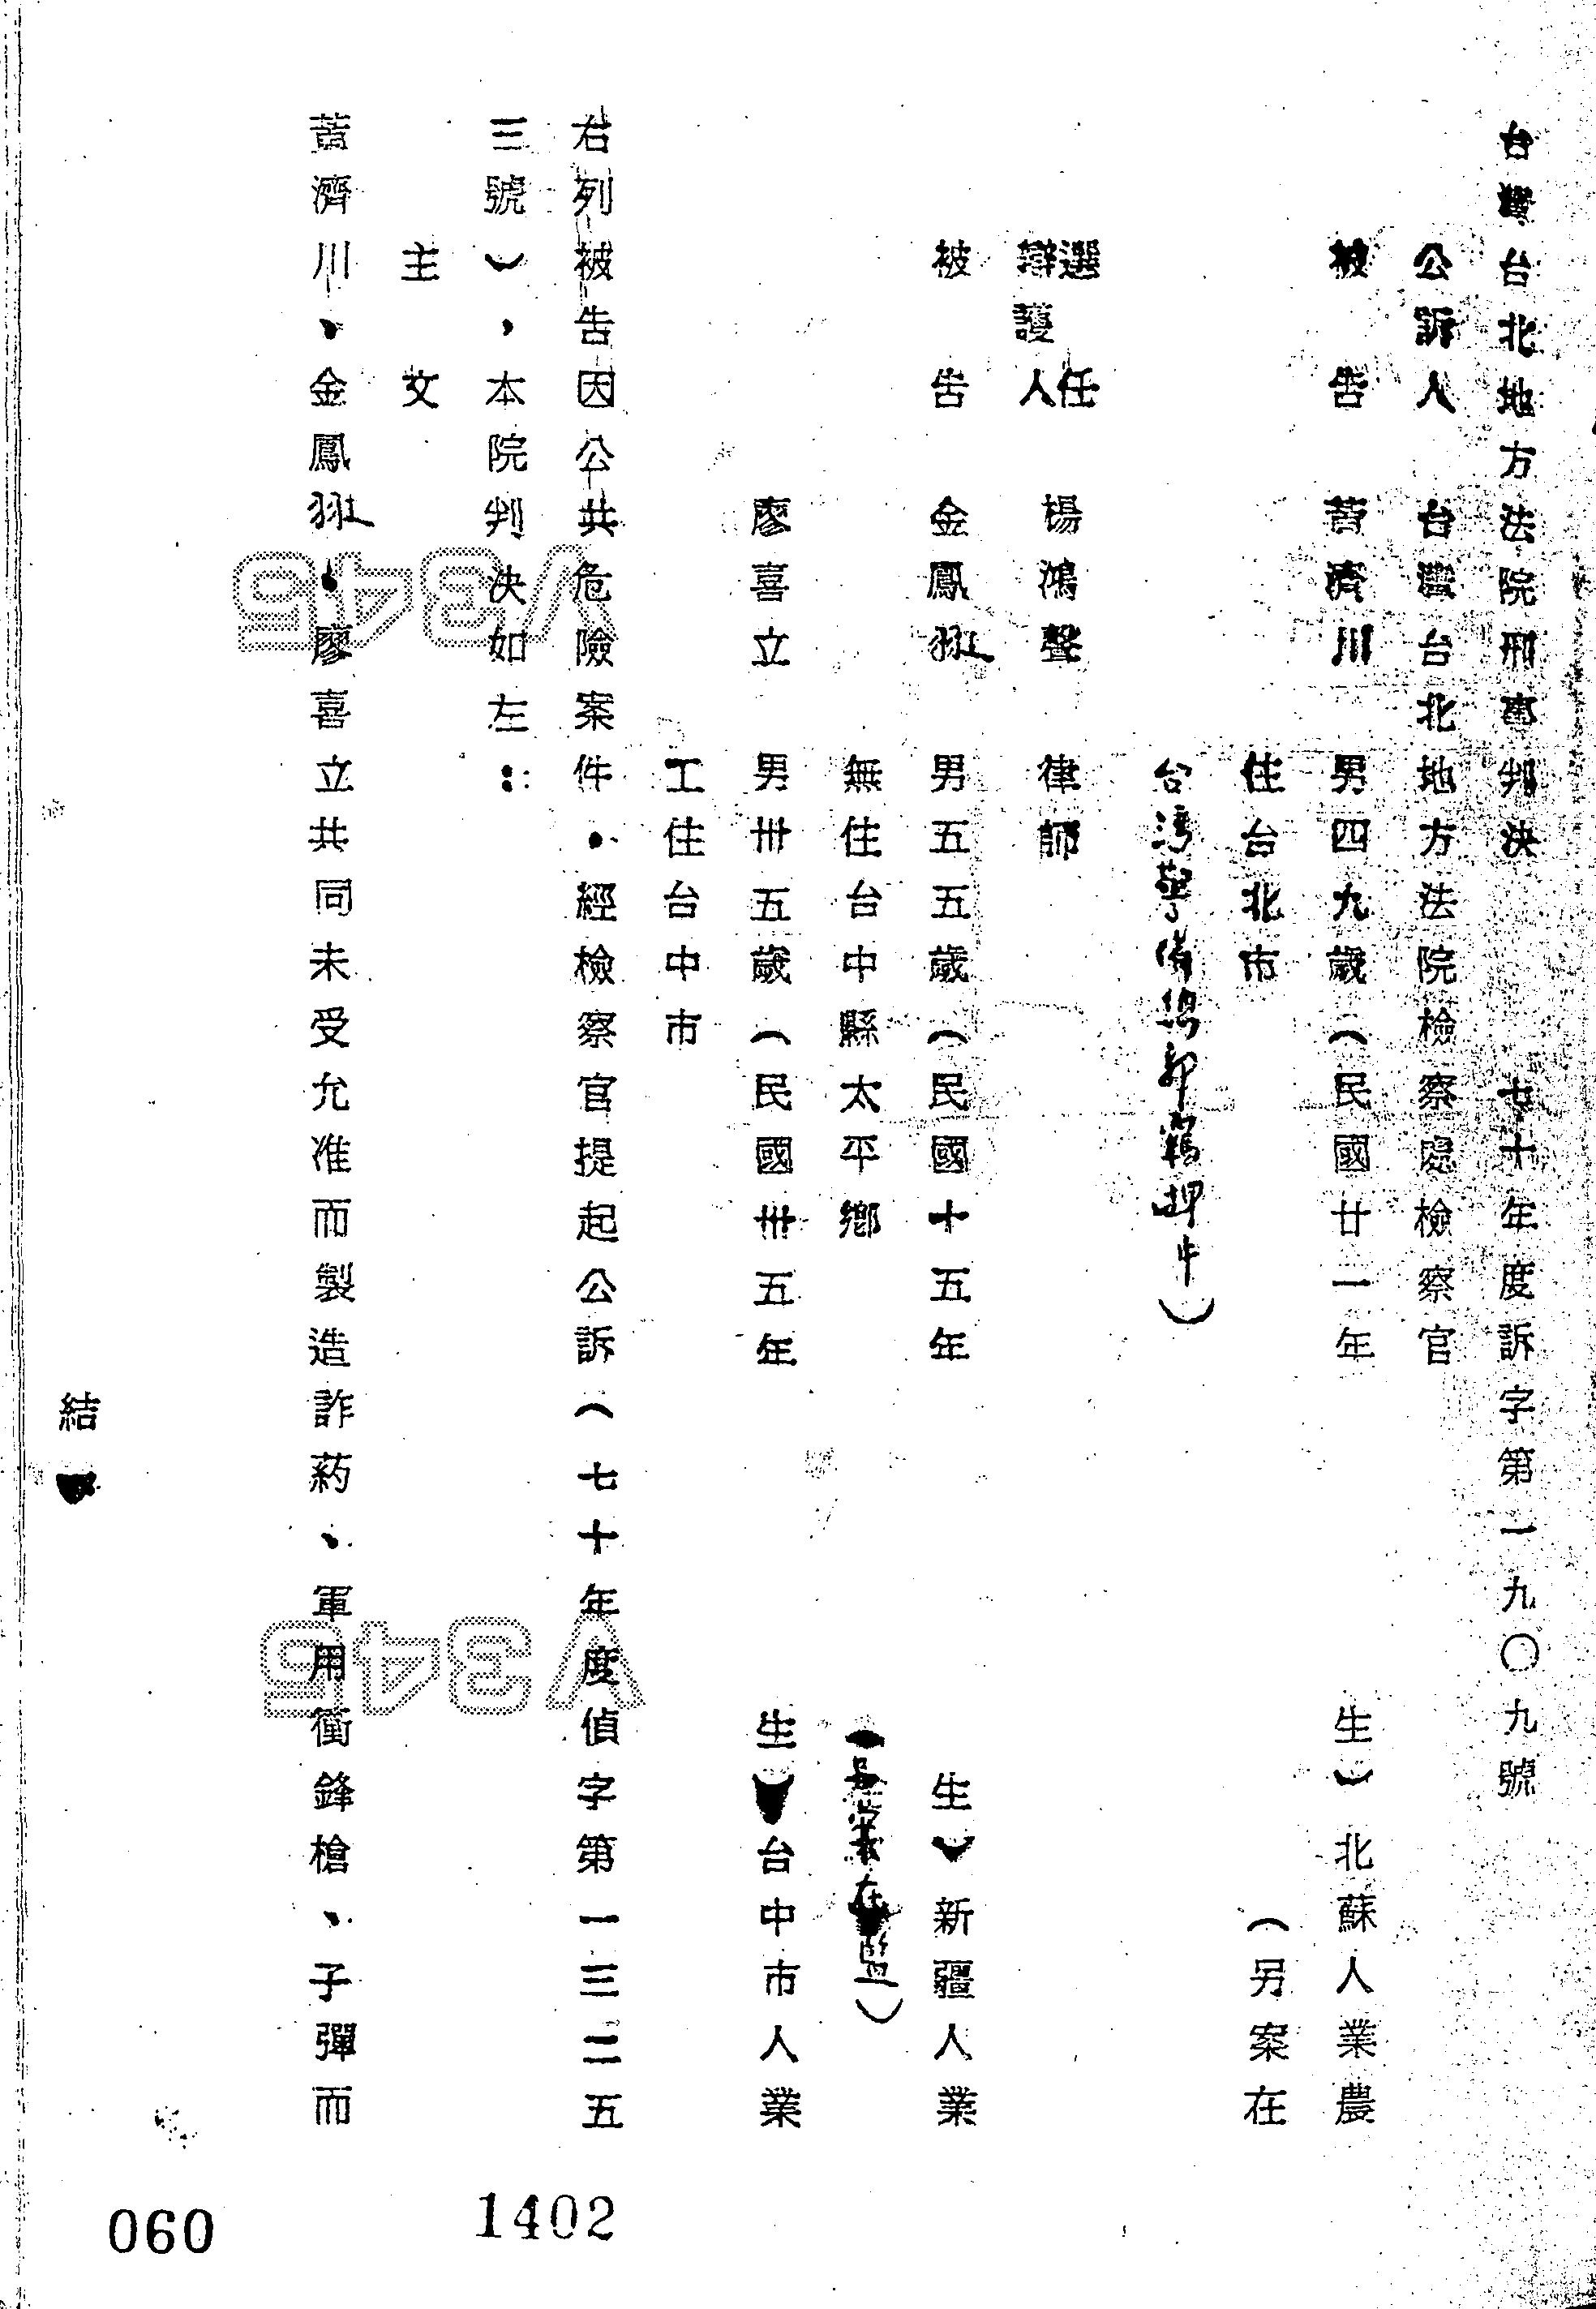 台灣台北地方法院刑事判決　七十年度訴字第一九〇九號
公訴人　台灣台北地方法院檢察處檢察官
被告　黃濟川　男四九歲（民國廿一年　生）北蘇人業農
住台北市　（另案在
台湾警備總部羈押中）
選任
辯護人　楊鴻聲　律師
被告　金鳳翔　男五五歲（民國十五年　生）新疆人業
無住台中縣太平鄉　在監）
廖喜立　男卅五歲（民國卅五年　生）台中市人業
工住台中市
右列被告因公共危險案件，經檢察官提起公訴（七十年度偵字第一三二五
三號），本院判決如左：
主文
黃濟川、金鳳翔、廖喜立共同未受允准而製造詐葯、軍用衝鋒槍、子彈而
結
060
1402
V345
V345